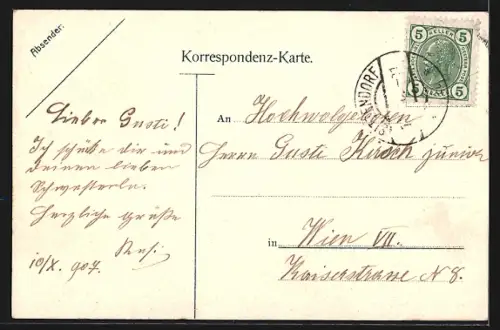 Absender:
Korrespondenz-Karte.
5 HELLER 5
5 5
Lieber Gusti!
Ich schicke dir und
deinen lieben
Schwesterln.
Herzliche Grüße
Resi
10/X. 907.
An Hochwolgeboren
Herrn Gusti Kirsch junior
in Wien VII.
Kaiserstrasse N 8.